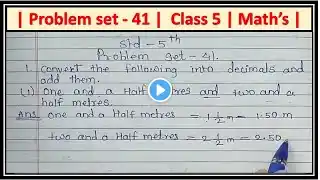 | Problem set - 41 | Class 5 | Math's |
std - 5th
Problem set - 41.
1. convert the following into decimals and
add them.
(1) one and a Half metres and two and a
half metres.
Ans. one and a Half metres = 1 1/2 m = 1.50 m
two and a Half metres = 2 1/2 m = 2.50